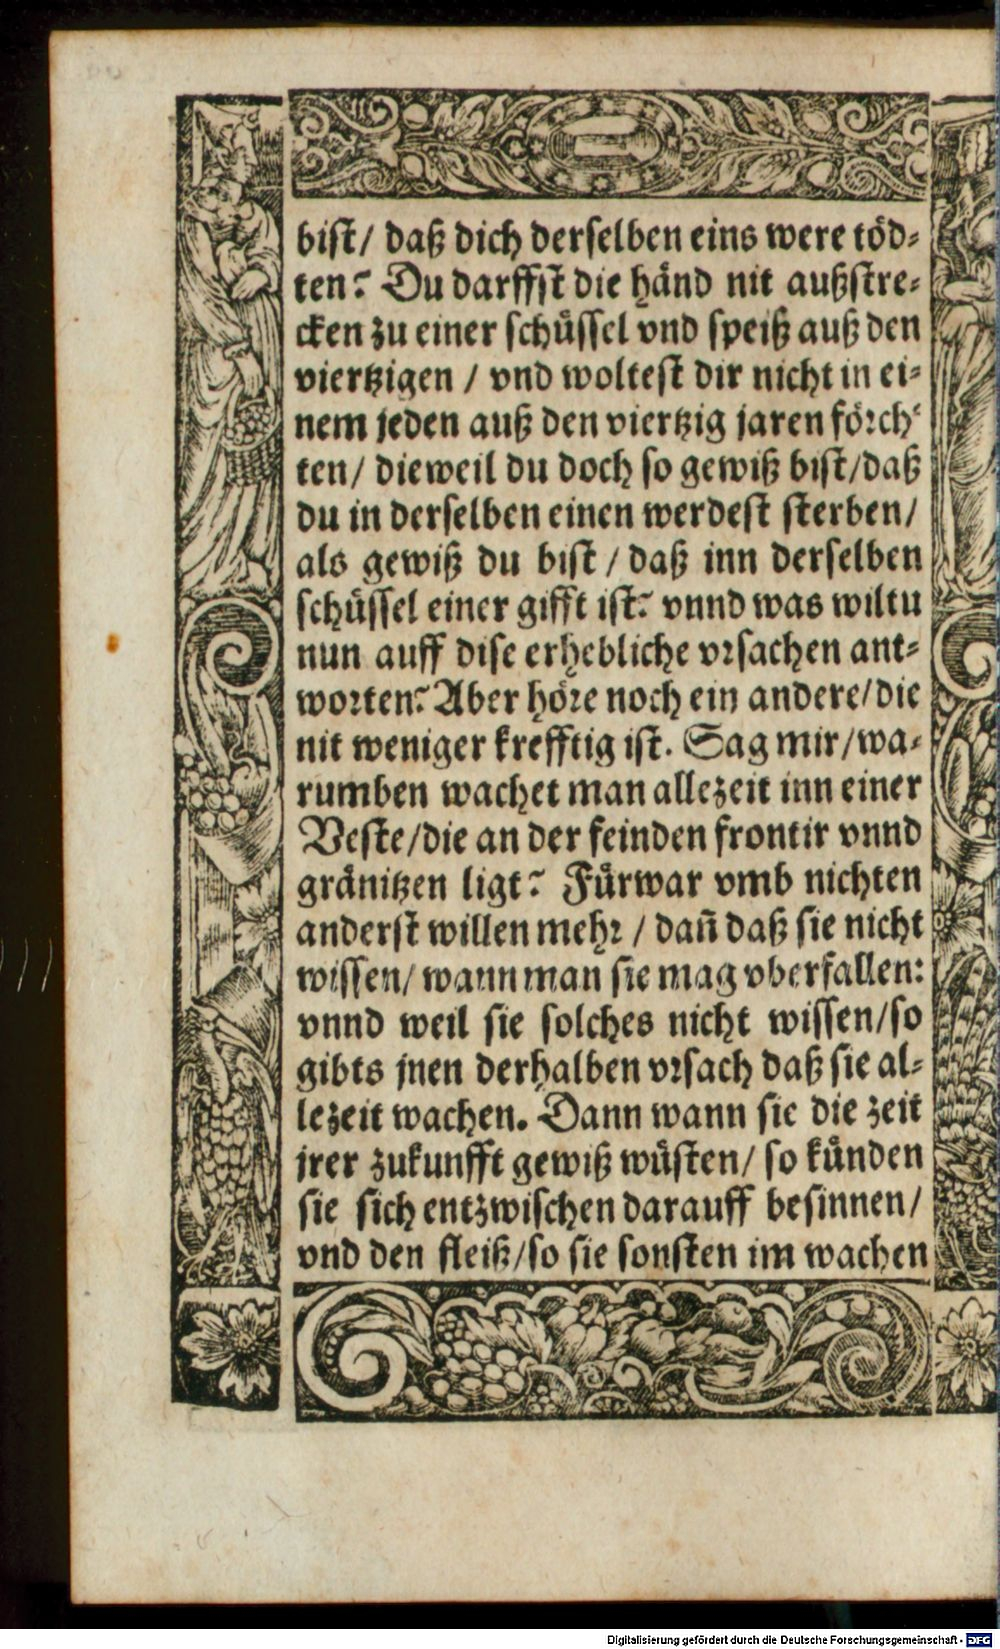 bist/ daß dich derselben eins were töd⸗
ten? Du darffst die händ nit außstre⸗
cken zu einer schüssel vnd speiß auß den
viertzigen / vnd woltest dir nicht in ei⸗
nem jeden auß den viertzig jaren förch⸗
ten/ dieweil du doch so gewiß bist/daß
du in derselben einen werdest sterben/
als gewiß du bist / daß inn derselben
schüssel einer gifft ist? vnnd was wiltu
nun auff dise erhebliche vrsachen ant⸗
worten? Aber höre noch ein andere/die
nit weniger krefftig ist. Sag mir/wa⸗
rumben wachet man allezeit inn einer
Veste/die an der feinden frontir vnnd
gränitzen ligt? Fürwar vmb nichten
anderst willen mehr / dañ daß sie nicht
wissen/ wann man sie mag vberfallen:
vnnd weil sie solches nicht wissen/so
gibts jnen derhalben vrsach daß sie al⸗
lezeit wachen. Dann wann sie die zeit
jrer zukunfft gewiß wüsten/ so künden
sie sich entzwischen darauff besinnen/
vnd den fleiß/so sie sonsten im wachen
Digitalisierung gefördert durch die Deutsche Forschungsgemeinschaft - DFG